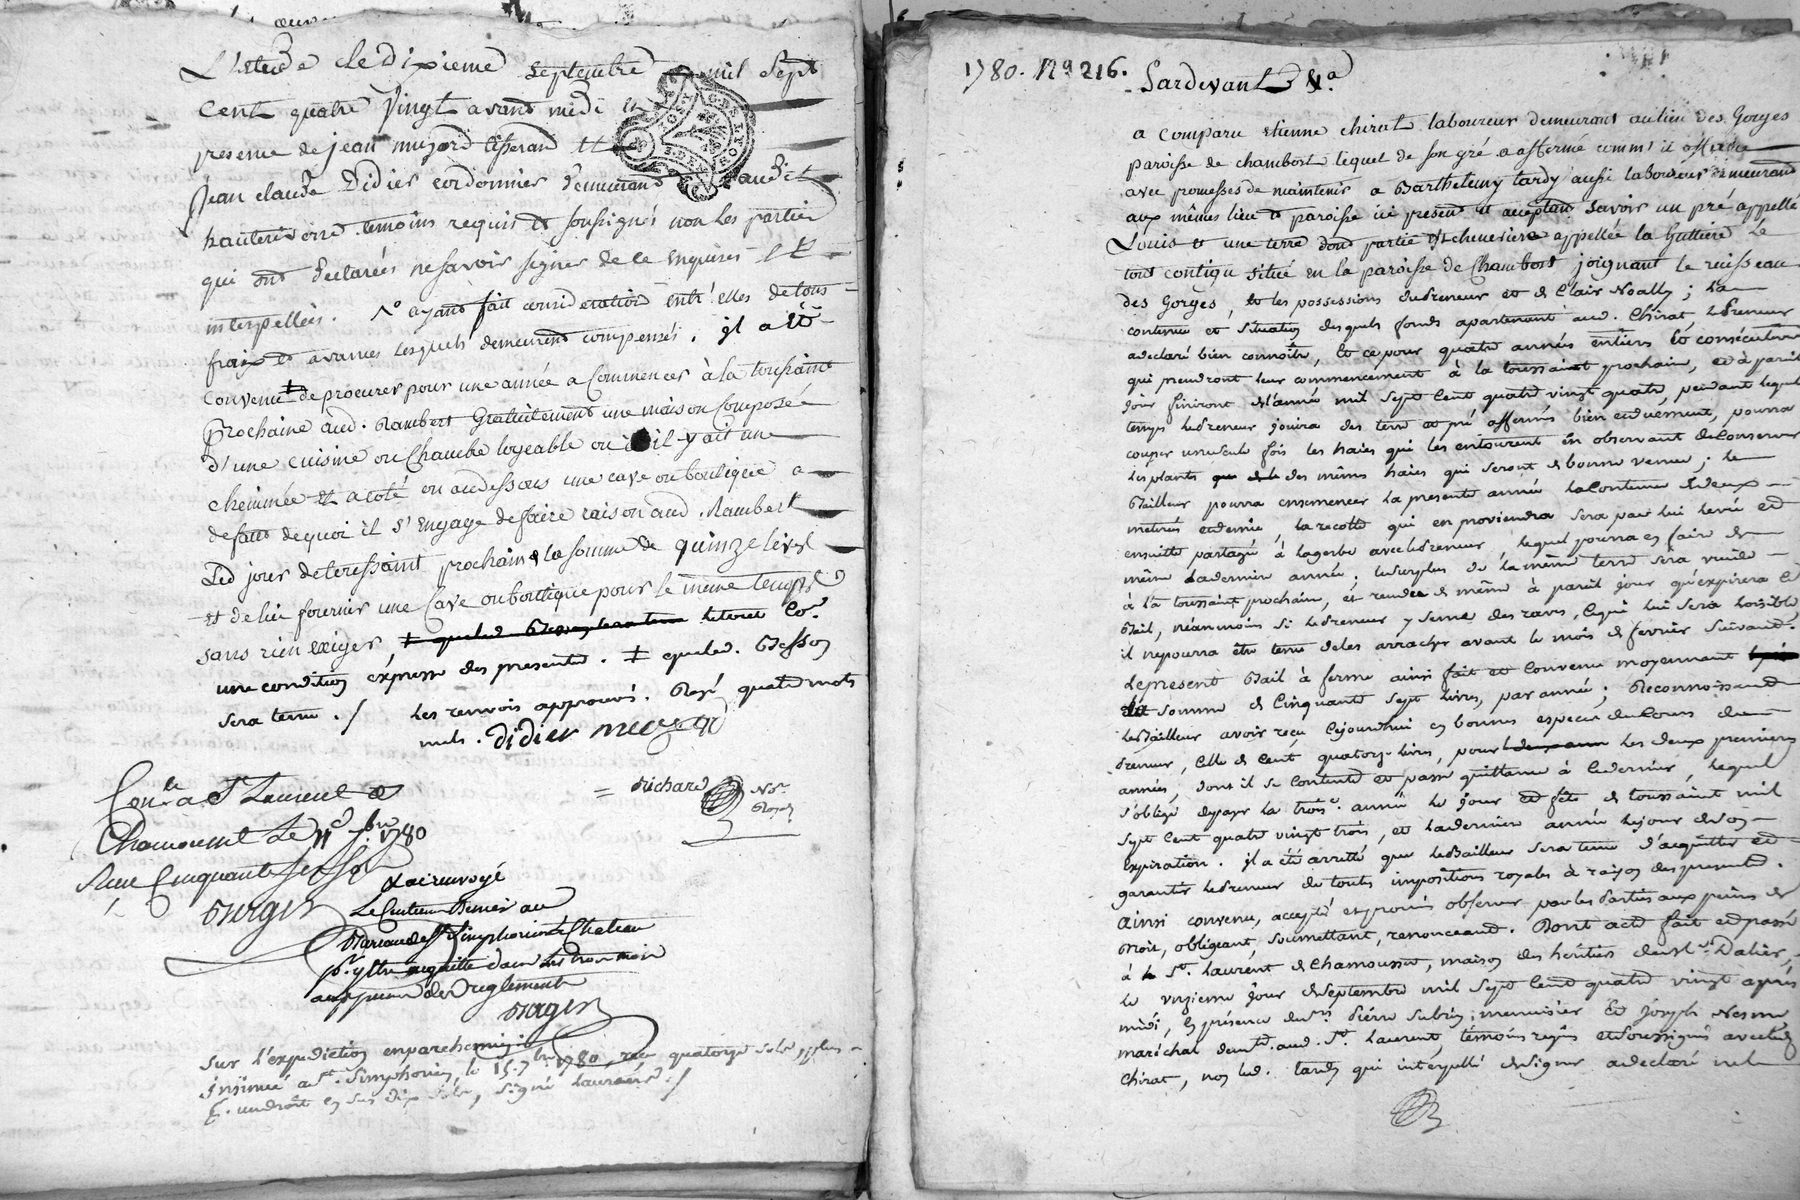 le dixieme septembre mil sept
cent quatre vingt avant midi en
presence de jean mujard tisserand et
jean claude Didier cordonnier demeurant audit
hauterivoire temoins requis et soussignés non les parties
qui ont declarées ne savoir signer de ce enquises et
interpellées. ayant fait consideration entr'elles de tous
fraix et avances lesquels demeurent compensés. il a été
convenu de procurer pour une année a commencer à la toussaint
prochaine aud. Rambert Gratuitement une maison composée
d'une cuisine ou chambre logeable ou il y ait une
cheminée et a coté ou au dessous une cave ou boutique a
defaut de quoi il s'engage de faire raison aud. Rambert
led jour de toussaint prochain de la somme de quinze livres
et de lui fournir une cave ou boutique pour le même temps
sans rien exiger, le tout co.
une condition expresse des presentes. ‡ que led. Besson
sera tenu ./ les renvois approuvés. Rayé quatre mots
nuls. didier mujard
= Richard No.re
Royal
Con.lé a St Laurent de
Chamousset Le 11e 7bre 1780
Reçu Cinquante six sols
Burgin
& a renvoyé
Le Centieme Denier au
Bureau de St Simphorien le Chateau
p.r y être acquitté dans les trois mois
aux peines des reglements
Burgin
sur l'expedition en parchemin
insinué a St. Simphorien le 15. 7bre 1780, reçu quatorze sols, plus
un droit en sus dix sols, signé Laurent ./
1780. No 216. Pardevant &a.
a comparu etienne chirat laboureur demeurant au lieu des Gorges
paroisse de chambost lequel de son gré a affermé comme il afferme
avec promesses de maintenir a Barthelemy tardy aussi laboureur demeurant
aux mêmes lieu et paroisse ici present et acceptant savoir un pré appellé
Louis et une terre dont partie est cheneviere appellée la Guttiere le
tout contigu situé en la paroisse de Chambost joignant le ruisseau
des Gorges, et les possessions du preneur et de Clair Noally; la
contenue et situation desquels fonds apartenant aud. Chirat le preneur
a declaré bien connoitre, et ce pour quatre années entieres et consécutives
qui prendront leur commencement à la toussaint prochain, et à pareil
jour finiront de l'année mil sept cent quatre vingt quatre, pendant lequel
temps le preneur jouira des terre et pré affermés bien et duement, pourra
couper une seule fois les haies qui les entourent en observant de conserver
les plants des mêmes haies qui seront de bonne venue; le
Bailleur pourra ensemencer la presente année la contenue de deux
metrés et demie, la recolte qui en proviendra sera par lui levée et
ensuitte partagé à la gerbe avec le preneur, lequel pourra en faire de
même la derniere année; le surplus de la même terre sera vuide
à la toussaint prochain, et rendee de même à pareil jour qu'expirera le
Bail, néanmoins si le preneur y seme des raves, ce qui lui sera loisible,
il ne pourra être tenu de les arracher avant le mois de fevrier suivant.
Le present Bail à ferme ainsi fait et convenu moyennant
la somme de Cinquante sept livres, par année; Reconnoissant
le Bailleur avoir reçu cejourdhui en bonnes especes du cours du
preneur, celle de Cent quatorze livres, pour les deux premieres
années, dont il se contente et passe quittance à ce dernier, lequel
s'oblige de payer la trois.e année le jour et fête de toussaint mil
sept cent quatre vingt trois, et la derniere année le jour de son
expiration. il a été arrêté que le Bailleur sera tenu d'acquitter et
garantir le preneur de toutes impositions royales à raison des presentes.
Ainsi convenu, accepté et promis observer par les parties aux peines de
Droit, obligeant, soumettant, renonceant. Dont acte fait et passé
à St. Laurent de Chamousset, maison des héritiers du Sr. Dalier,
le onzieme jour de septembre mil sept cent quatre vingt après
midi, en présence de Pierre Subrin menuisier et Joseph Nesme
maréchal demt. aud. St. Laurent témoins requis et soussignés avec led
Chirat, non led. tardy qui interpellé de signer a declaré ne le